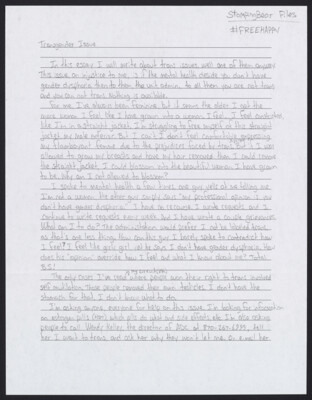 StarryBear Files
#FREEHAPPY
Transgender Issue
In this essay I will write about trans issues, well one of them anyway.
This issue an injustice to me, is if the mental health decide you don't have
gender dysphoria then to them, the unit admin. to all them you are not trans
and you are not trans nothing is available.
For me, I've always been feminine but it seems the older I get the
more woman I feel like I have grown into a woman. I feel, I feel
like I'm in a straight jacket. I'm struggling to free myself of this straight
jacket my male exterior. But I can't. I don't feel comfortable
my transgender female due to the prejudices faced by trans. But if I was
allowed to grow my breasts and have my hair removed then I could remove
the straight jacket. I could blossom into the beautiful woman I have grown
to be. Why am I not allowed to blossom?
I spoke to mental health a few times, one guy gets at me telling me
I'm not a woman, the other guy simply says "my professional opinion is you
don't have gender dysphoria". I have to research, I write requests and I
continue to write requests every week but I have wrote a couple grievances.
What am I to do? The administration would prefer I not be labeled trans,
so that's one less thing. How can this guy I barely spoke to contradict how
I feel? I feel like a girl, yet he says I don't have gender dysphoria. How
does his "opinion" override how I feel and what I know about me? Total
B.S!
The only cases I've read where people won their right to trans involved
self mutilation. These people removed their own testicles. I don't have the
stomach for that. I don't know what to do.
I'm asking anyone, everyone for help on this issue. I'm looking for information
on estrogen pills (HRT) which pills do what and side effects etc. I'm also asking
people to call Wendy Kelley the director of ADC at 870-267-6999, tell
her I want to be trans and ask her why they won't let me. Or email her